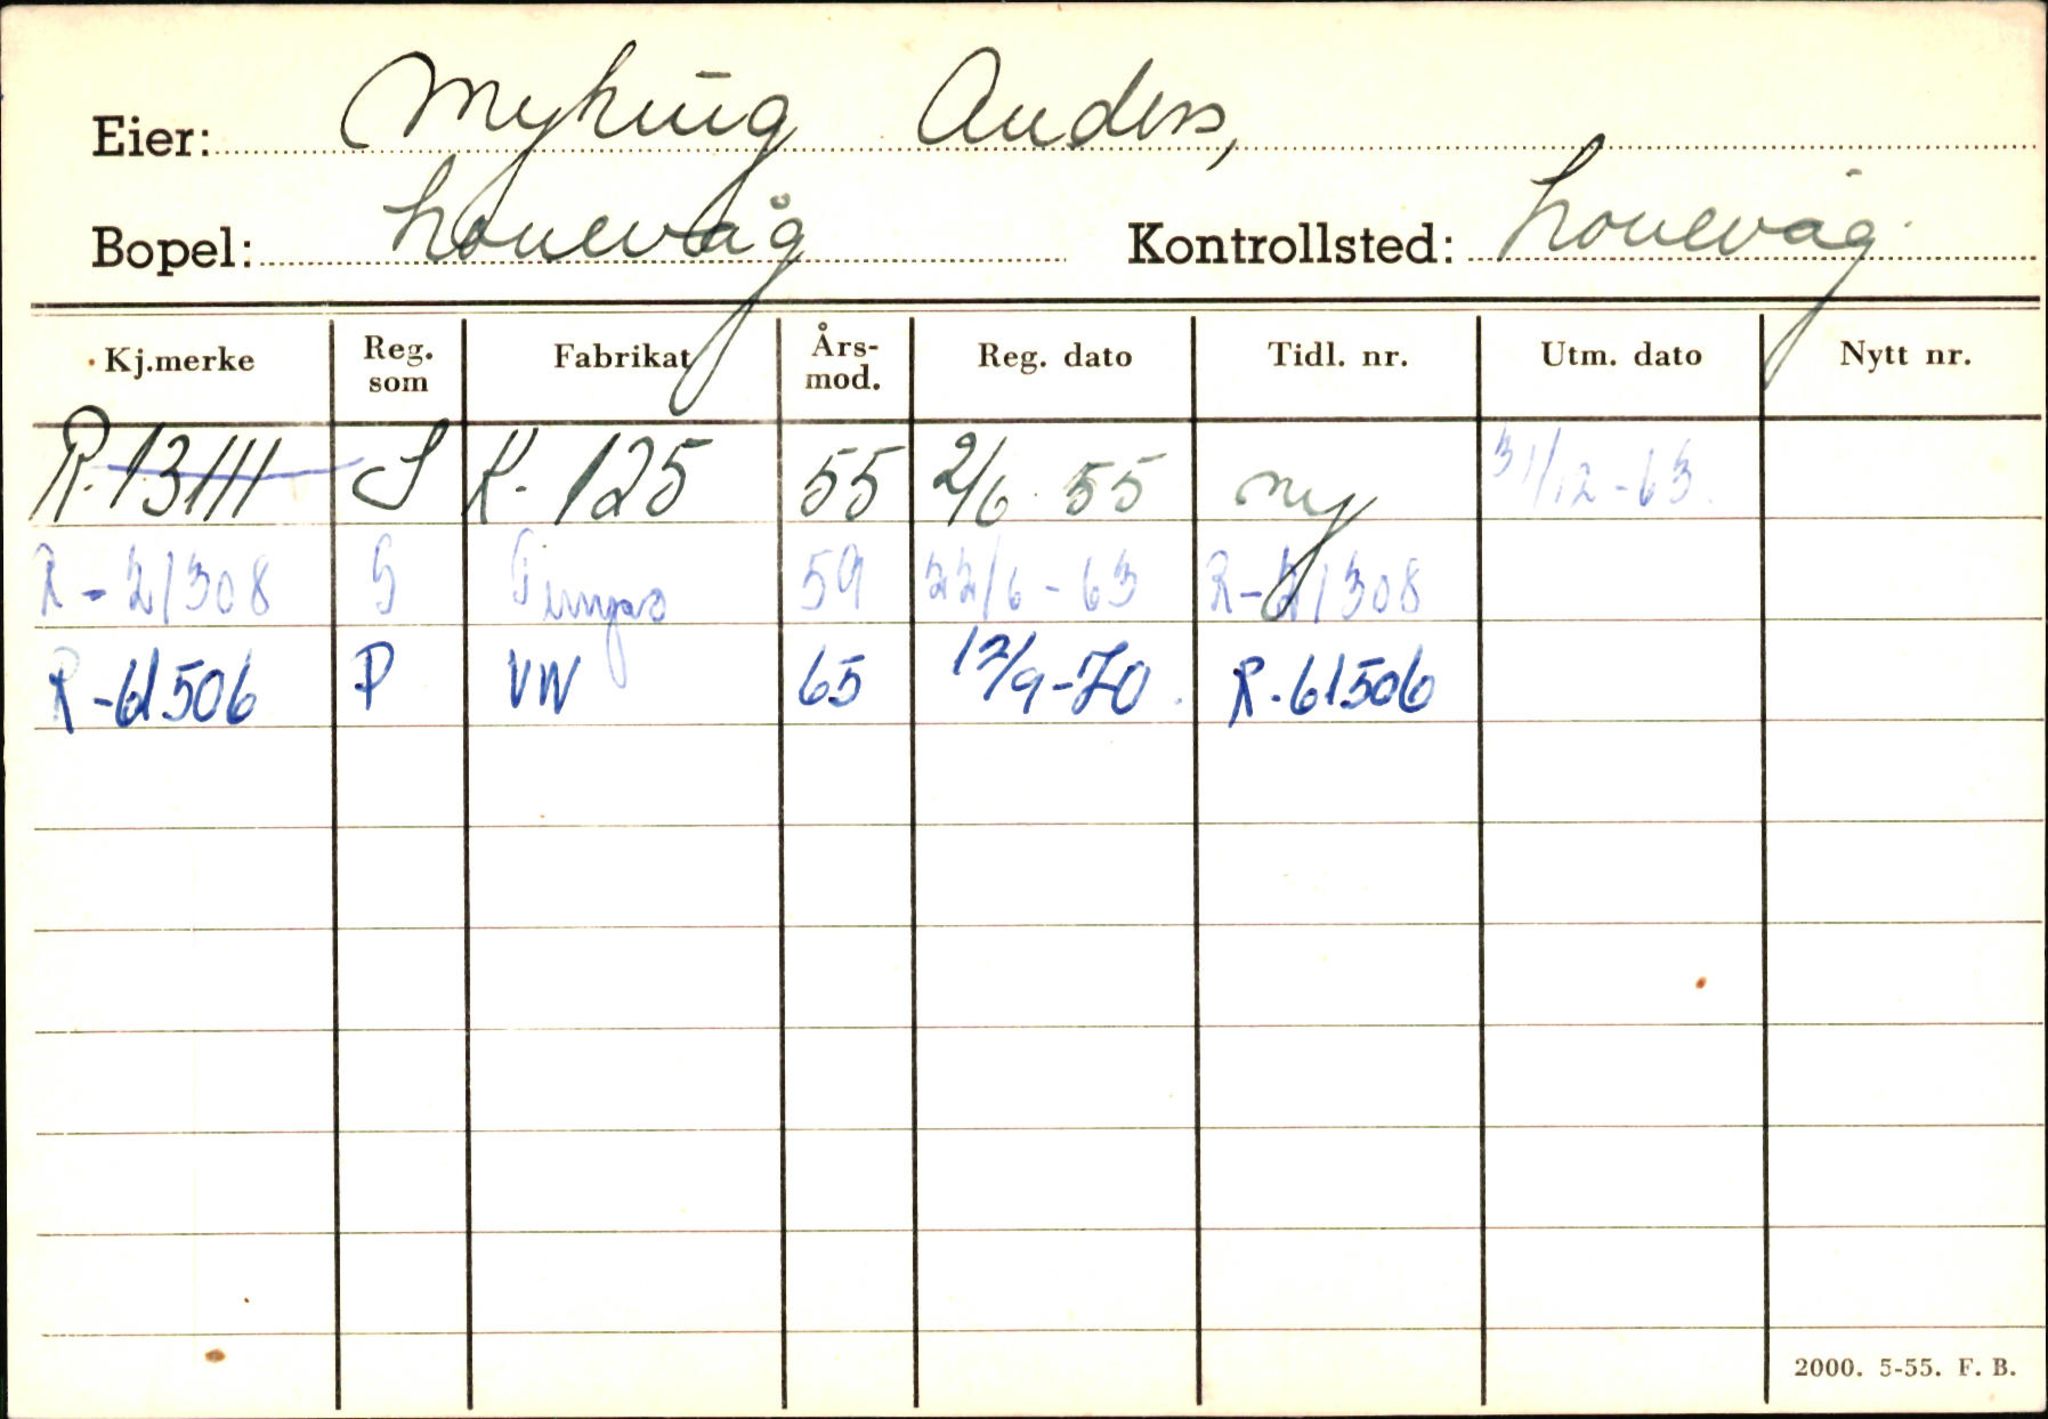 Eier: Myking Anders,
Bopel: Lonevåg Kontrollsted: Lonevåg
Kj.merke Reg. som Fabrikat Års-mod. Reg. dato Tidl. nr. Utm. dato Nytt nr.
R-13111 S K-125 55 2/6 55 ny 31/12-63
R-21308 S Tempo 59 22/6-63 R-21308
R-61506 P VW 65 12/9-70 R-61506
2000. 5-55. F. B.